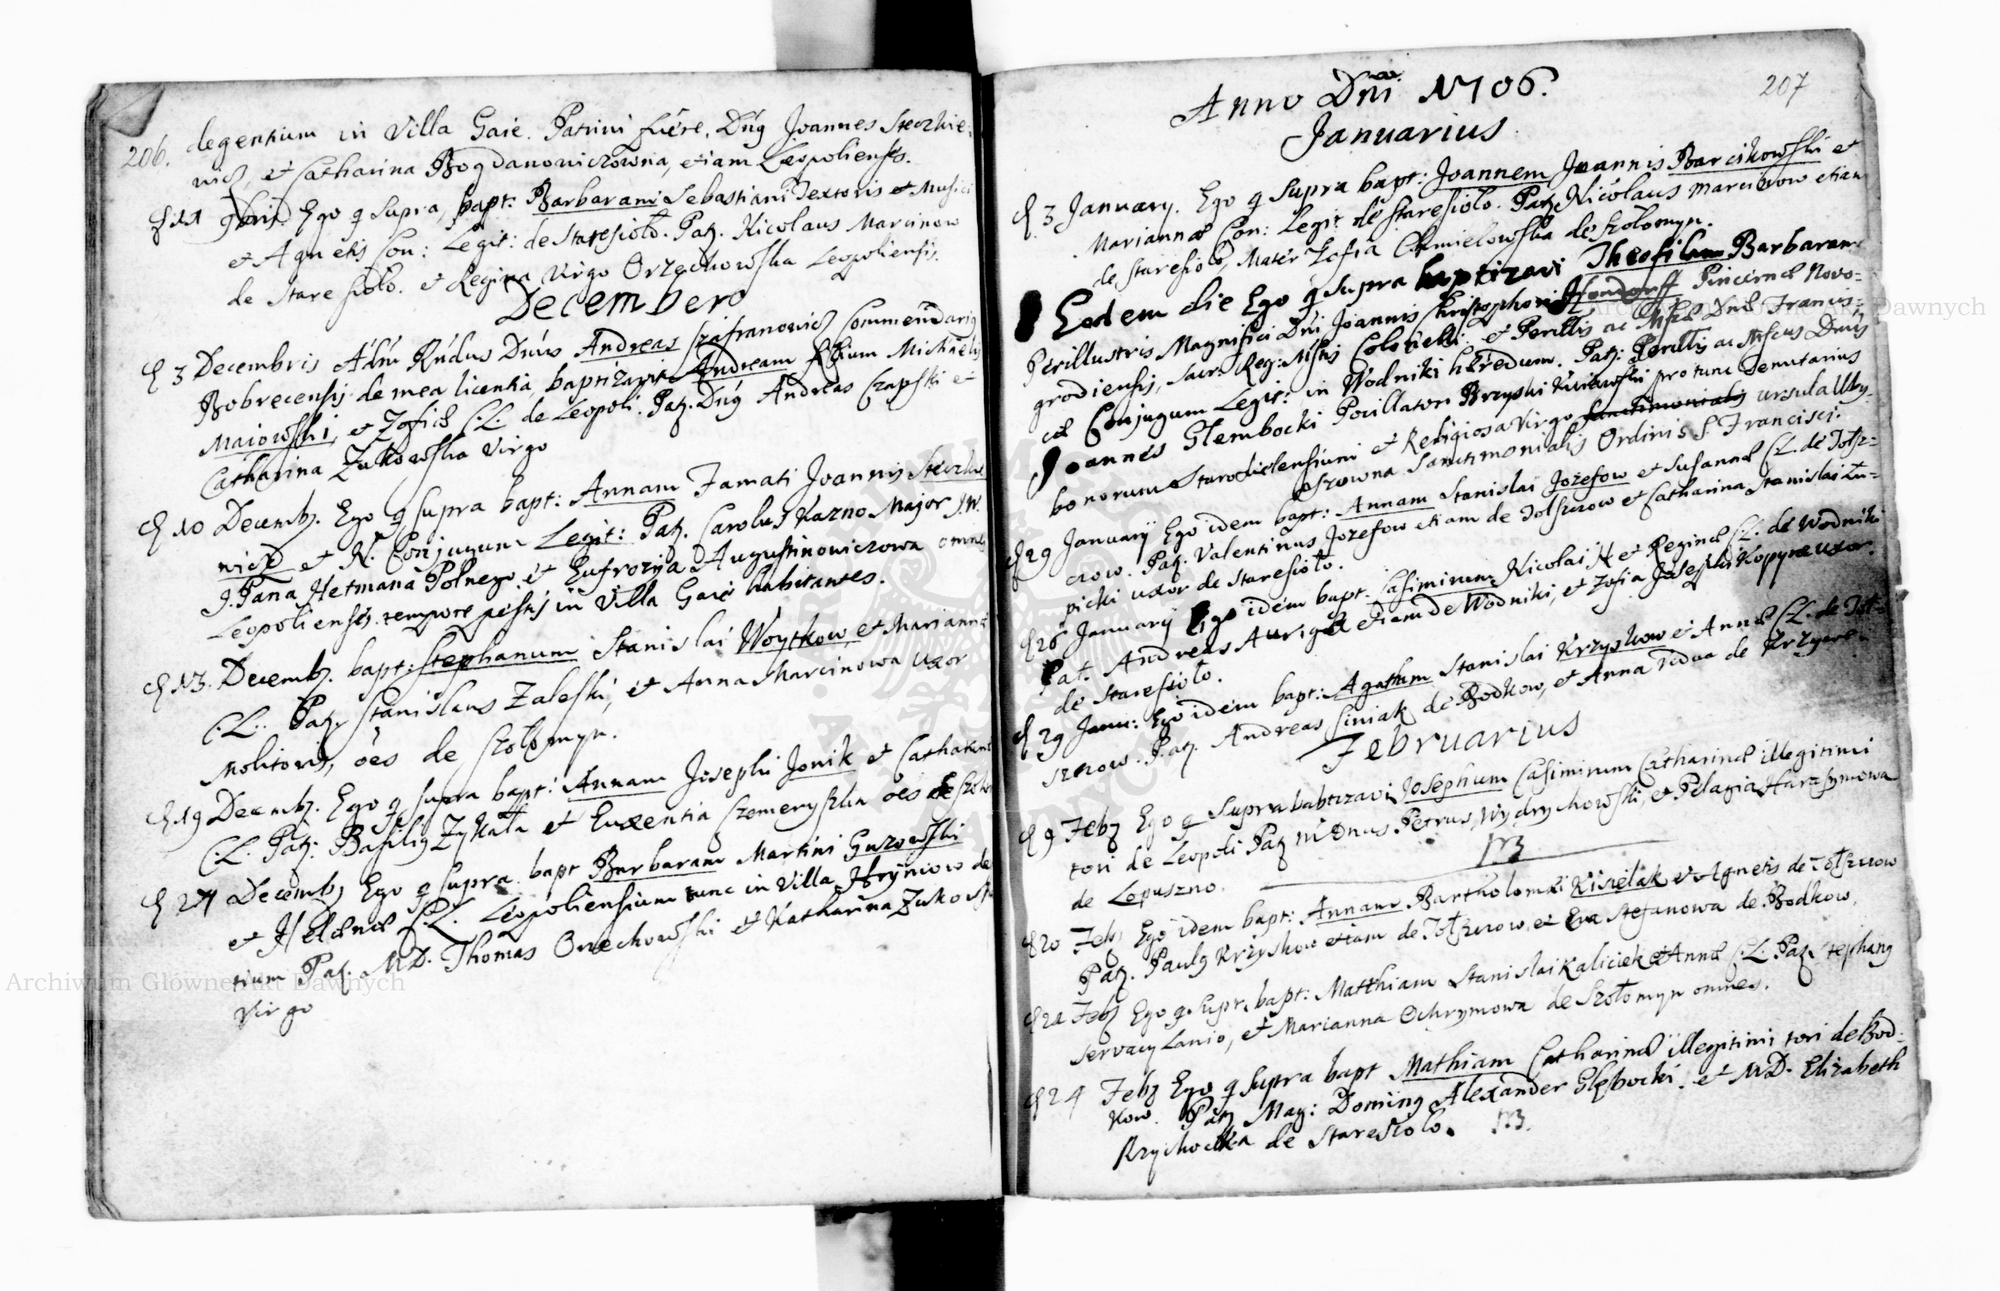 206. degentium in Villa Gaie. Patrini fuere, Dnus Joannes Steczkie-
wicz, et Catharina Bogdanowiczowna, etiam Leopolienses.
9bris. Ego q supra, bapt: Barbaram Sebastiani Textoris et Musici
et Agnetis Con: Legit: de Staresioło. Patr. Nicolaus Marcinow
de Staresioło. et Regina Virgo Orzechowska Leopoliensis.
December
3 Decembris Adm Rndus Dnus Andreas Szafranowicz Commendarius
Bobrecensis de mea licentia, baptizavit Andream filium Michaelis
Maiowski, et Zofiæ C.L. de Leopoli. Patr. Dnus Andreas Czapski et
Catharina Zukowska Virgo
10 Decemb. Ego q supra bapt: Annam Famati Joannis Steczkie
wicz et N. Conjugum Legit: Patr. Carolus Kazno Major J.W.
J.Pana Hetmana Polnego, et Eufrozyna Augustinowiczowa omnes
Leopolienses tempore pestis in Villa Gaie habitantes.
13. Decemb. bapt: Stephanum Stanislai Woytkow, et Mariannæ
C.L. Patr. Stanislaus Zaleski, et Anna Marcinowa uxor
Molitoris, oes de Szołomyn.
19 Decemb. Ego q supra bapt: Annam Josephi Jonik et Catharinæ
C.L. Patr: Basilius Zykała et Euxentia Szemeryszka oes de Szoło
Decemb Ego q supra bapt Barbaram Martini Gurowski
et Helenæ C.L. Leopoliensium tunc in Villa Hryniow de
tium Patr. MD. Thomas Orzechowski et Katharina Zukowska
Virgo
207
Anno Dni 1706.
Januarius.
3 January. Ego q supra bapt: Joannem Joannis Barcikowski et
Mariannæ Con: Legit de Staresioło. Patr Nicolaus Marcinow etiam
de Staresioło, Mater Zofia Chmielowska de Szolomyn.
Eodem die Ego q supra baptizavi Theofilam Barbaram
Perillustris Magnifici Dni Joannis Kristophori Hondorff Pincernæ Novo-
grodiensis, Sacr: Reg: Mtis Colonelli et Perillis ac Mfcæ Dnæ Francis-
cæ Conjugum Legit: in Wodniki hæredum. Patr: Perillis ac Mfcus Dnus
Joannes Glembocki Pocillator Brzyski Kuiawski pro tunc Tenutarius
bonorum Starosielensium et Religiosa Virgo Ursula
Sanctimonialis Ordinis S. Francisci.
January Ego idem bapt: Annam Stanislai Jozefow et Susannæ C.L. de Tołsz-
czow. Patr. Valentinus Jozefow etiam de Tołszczow et Catharina Stanislai
uxor de Staresioło.
26 January Ego idem bapt. Casimirum Nicolai N et Reginæ C.L. de Wodniki
Pat. Andreas Auriga etiam de Wodniki, et Zofia Josephi Kopyna uxor
de Staresioło.
29 Janu: Ego idem bapt: Agatham Stanislai Krzyskow et Annæ C.L. de Toł-
szczow. Patr. Andreas Siniak de Bodkow, et Anna vidua de
Februarius
9 Feb Ego q supra babtizavi Josephum Casimirum Catharinæ illegitimi
tori de Leopoli Patr ni Dnus Petrus Wydrychowski, et Pelagia Harasymowa
de Lopuszno.
20 Feb Ego idem bapt: Annam Bartholomæi Kisielak et Agnetis de Tołszczow
Patr. Paulus Krzyskow etiam de Tołszczow, et Eva Stefanowa de Bodkow.
Feb Ego q supr. bapt: Matthiam Stanislai Kaliciek et Annæ C.L. Patr. Stephanus
Servacy Lanio, et Marianna Ochrymowa de Szołomyn omnes.
24 Feb Ego q supra bapt Mathiam Catharinæ illegitimi tori de Bod-
kow. Patr Mag: Dominus Alexander Glębocki. et MD. Elizabeth
Krzychocka de Staresioło.